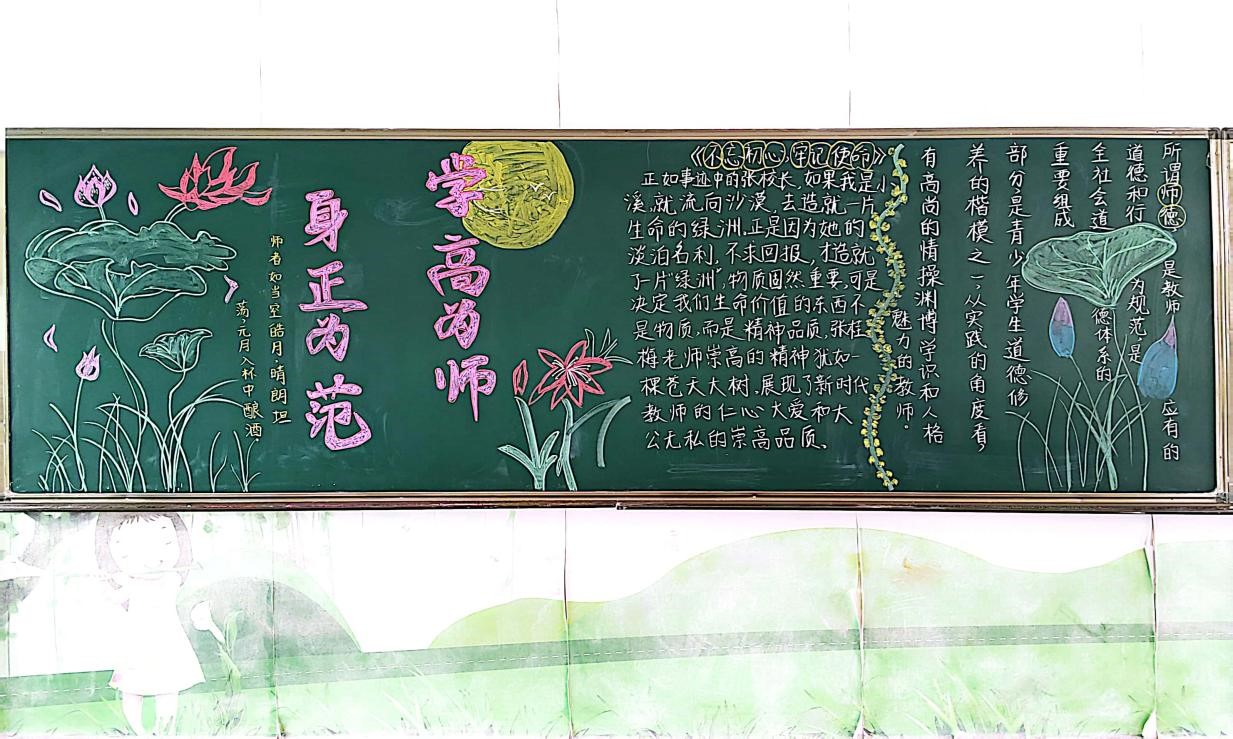 所谓师德是教师应有的
道德和行为规范,是
全社会道德体系的
重要组成
部分是青少年学生道德修
养的楷模之一,从实践的角度看,
有高尚的情操渊博学识和人格
魅力的教师.
《不忘初心,牢记使命》
正如事迹中的张校长,如果我是小
溪,就流向沙漠,去造就一片
生命的绿洲.正是因为她的
淡泊名利,不求回报,才造就
了一片“绿洲”,物质固然重要,可是
决定我们生命价值的东西不
是物质,而是精神品质,张桂
梅老师崇高的精神犹如一
棵苍天大树,展现了新时代
教师的仁心大爱和大
公无私的崇高品质。
学高为师
身正为范
师者如当空皓月,晴朗坦
荡,元月入杯中酿酒